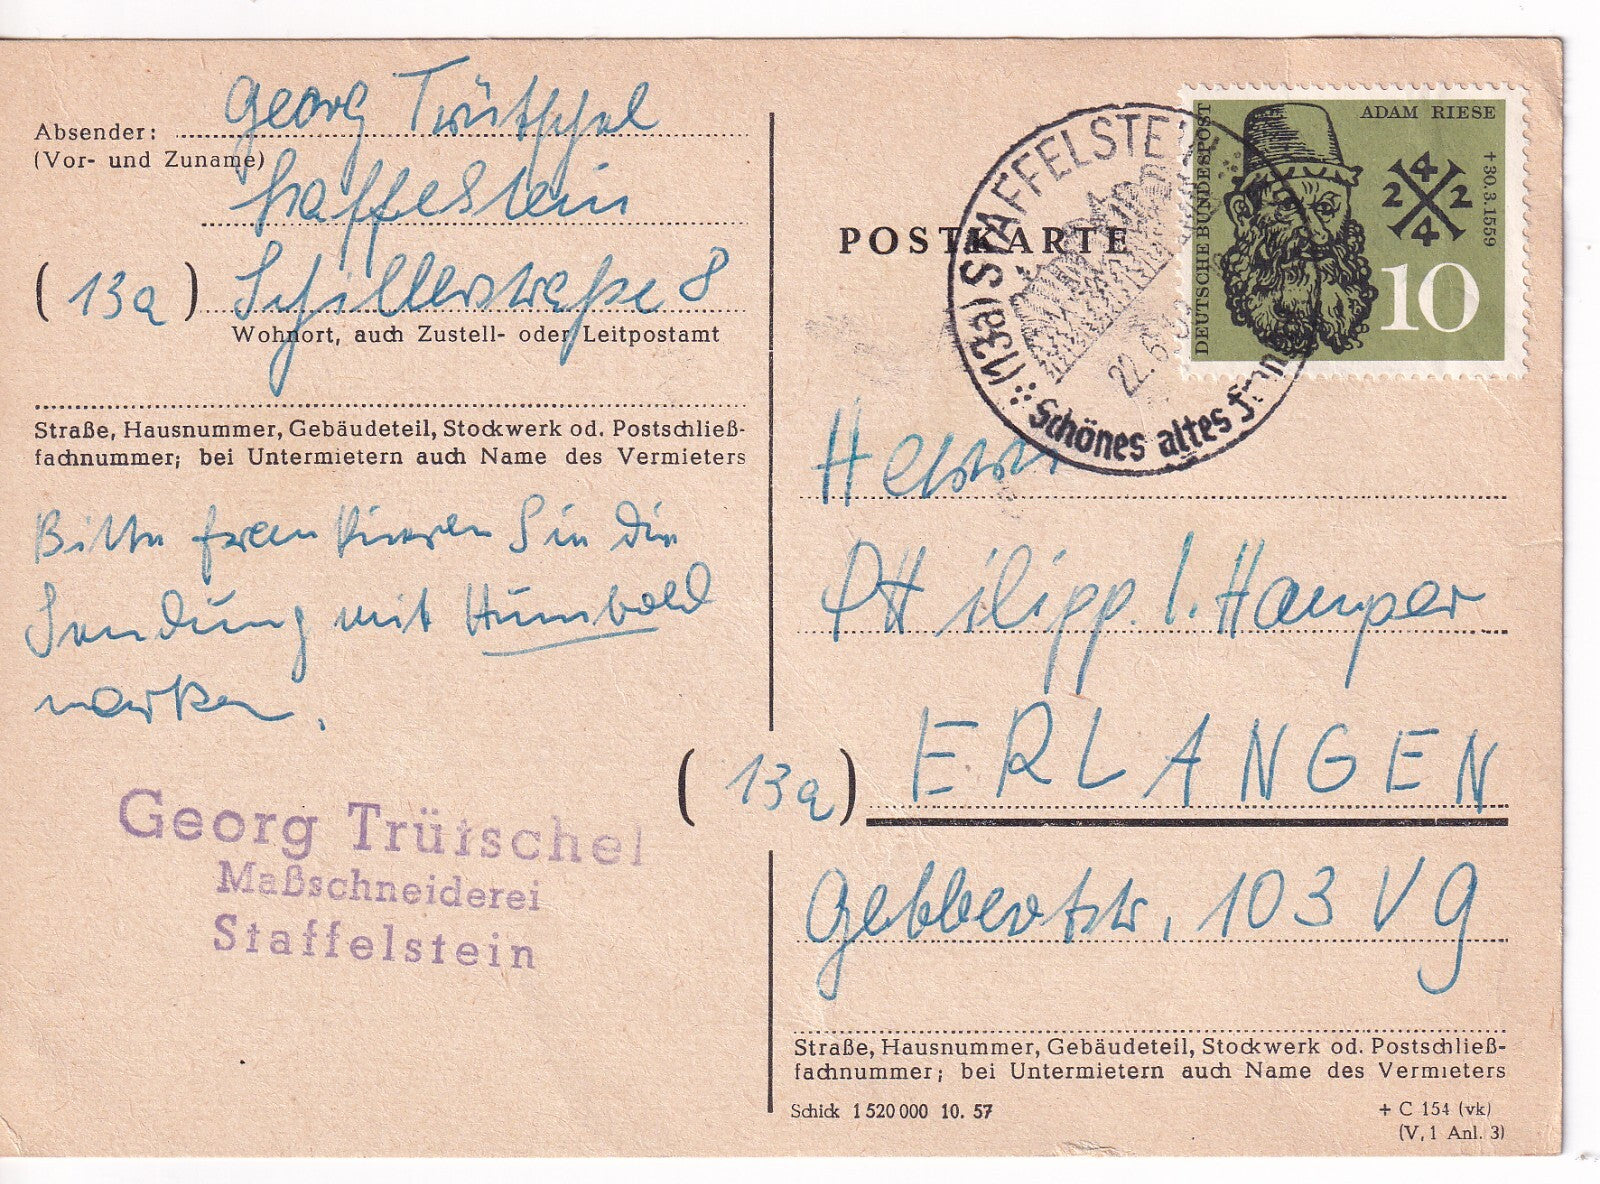 Absender: Georg Trütschel
(Vor- und Zuname)
Staffelstein
(13a) Schillerstraße 8
Wohnort, auch Zustell- oder Leitpostamt
Straße, Hausnummer, Gebäudeteil, Stockwerk od. Postschließ-
fachnummer; bei Untermietern auch Name des Vermieters
Bitte frankieren Sie die
Sendung mit Humbold
marken.
Georg Trütschel
Maßschneiderei
Staffelstein
POSTKARTE
(13a) STAFFELSTEIN
22.6.
Schönes altes
DEUTSCHE BUNDESPOST
ADAM RIESE
+30.3.1559
4
2 2
4
10
Herrn
PHilipp. l. Hamper
(13a) ERLANGEN
Gebbertstr. 103 Vg
Straße, Hausnummer, Gebäudeteil, Stockwerk od. Postschließ-
fachnummer; bei Untermietern auch Name des Vermieters
Schick 1 520 000 10. 57
+ C 154 (vk)
(V, 1 Anl. 3)